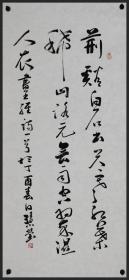 荊谿白石出天寒紅葉
稀山路元無雨空翠濕
人衣 書王維詩一首於丁酉春日